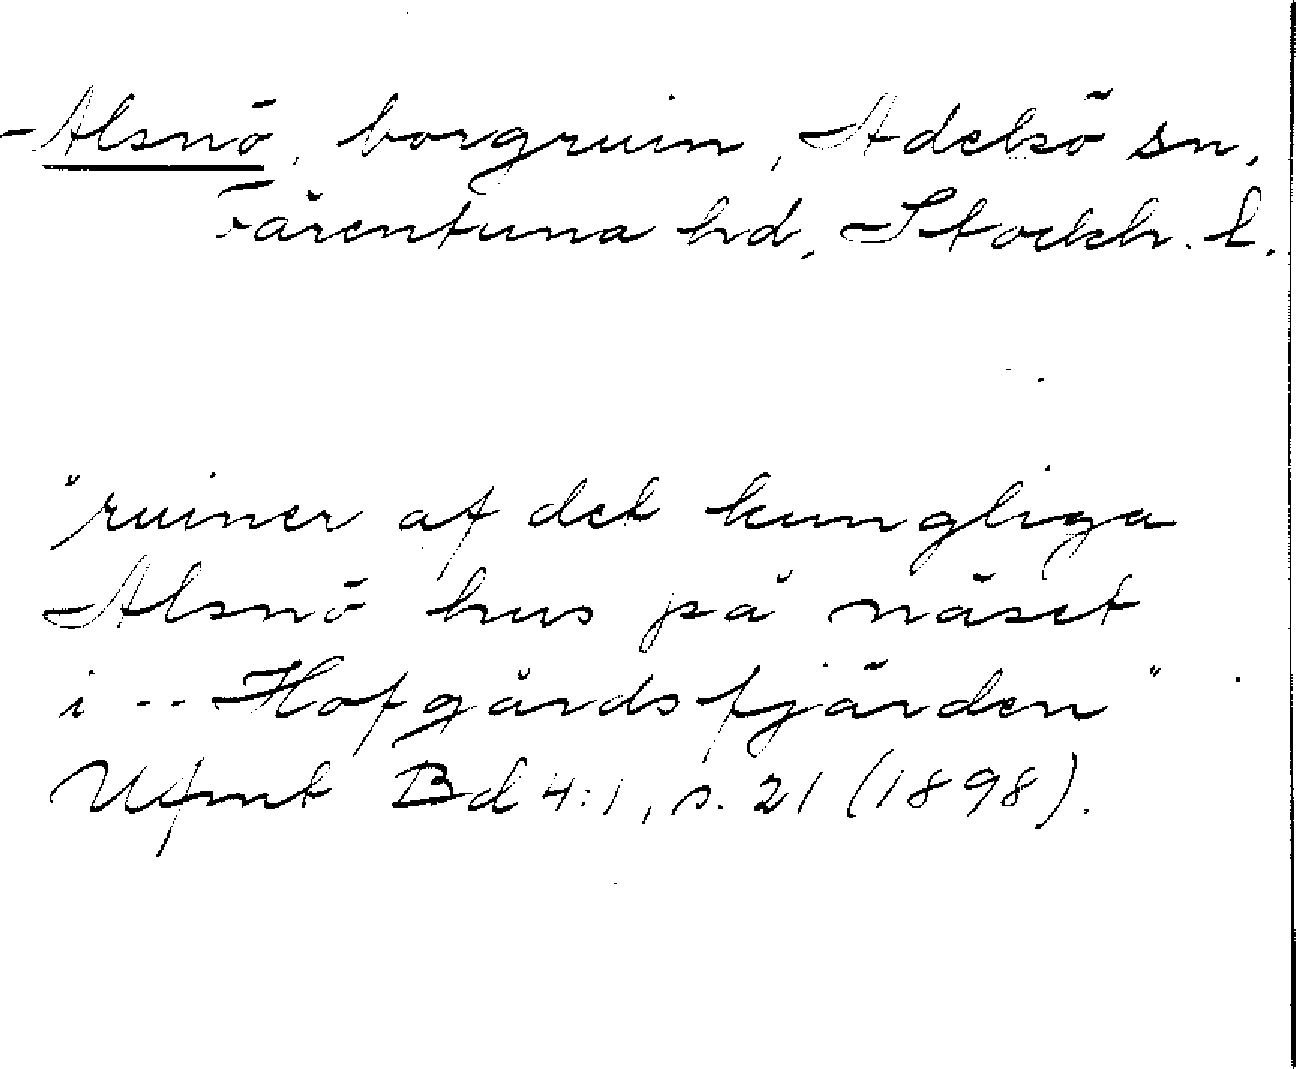 Alsnö, borgruin, Adelsö sn,
Färentuna hd, Stockh. l.
"ruiner af det kungliga
Alsnö hus på näset
i -- Hofgårdsfjärden"
Ufmt Bd 4:1, s. 21 (1898).